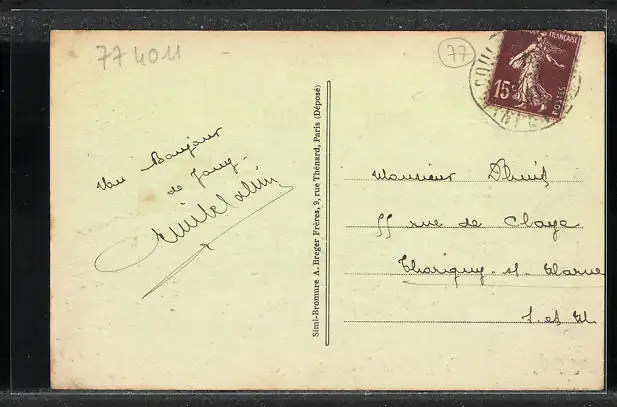 774011
77
FRANÇAISE
15c
POSTES
COU
Un Bonjour
de Jouy
Simi-Bromure A. Breger Frères, 9, rue Thénard, Paris (Déposé)
Monsieur
55 rue de Claye
Thorigny s/ Marne
S. et M.